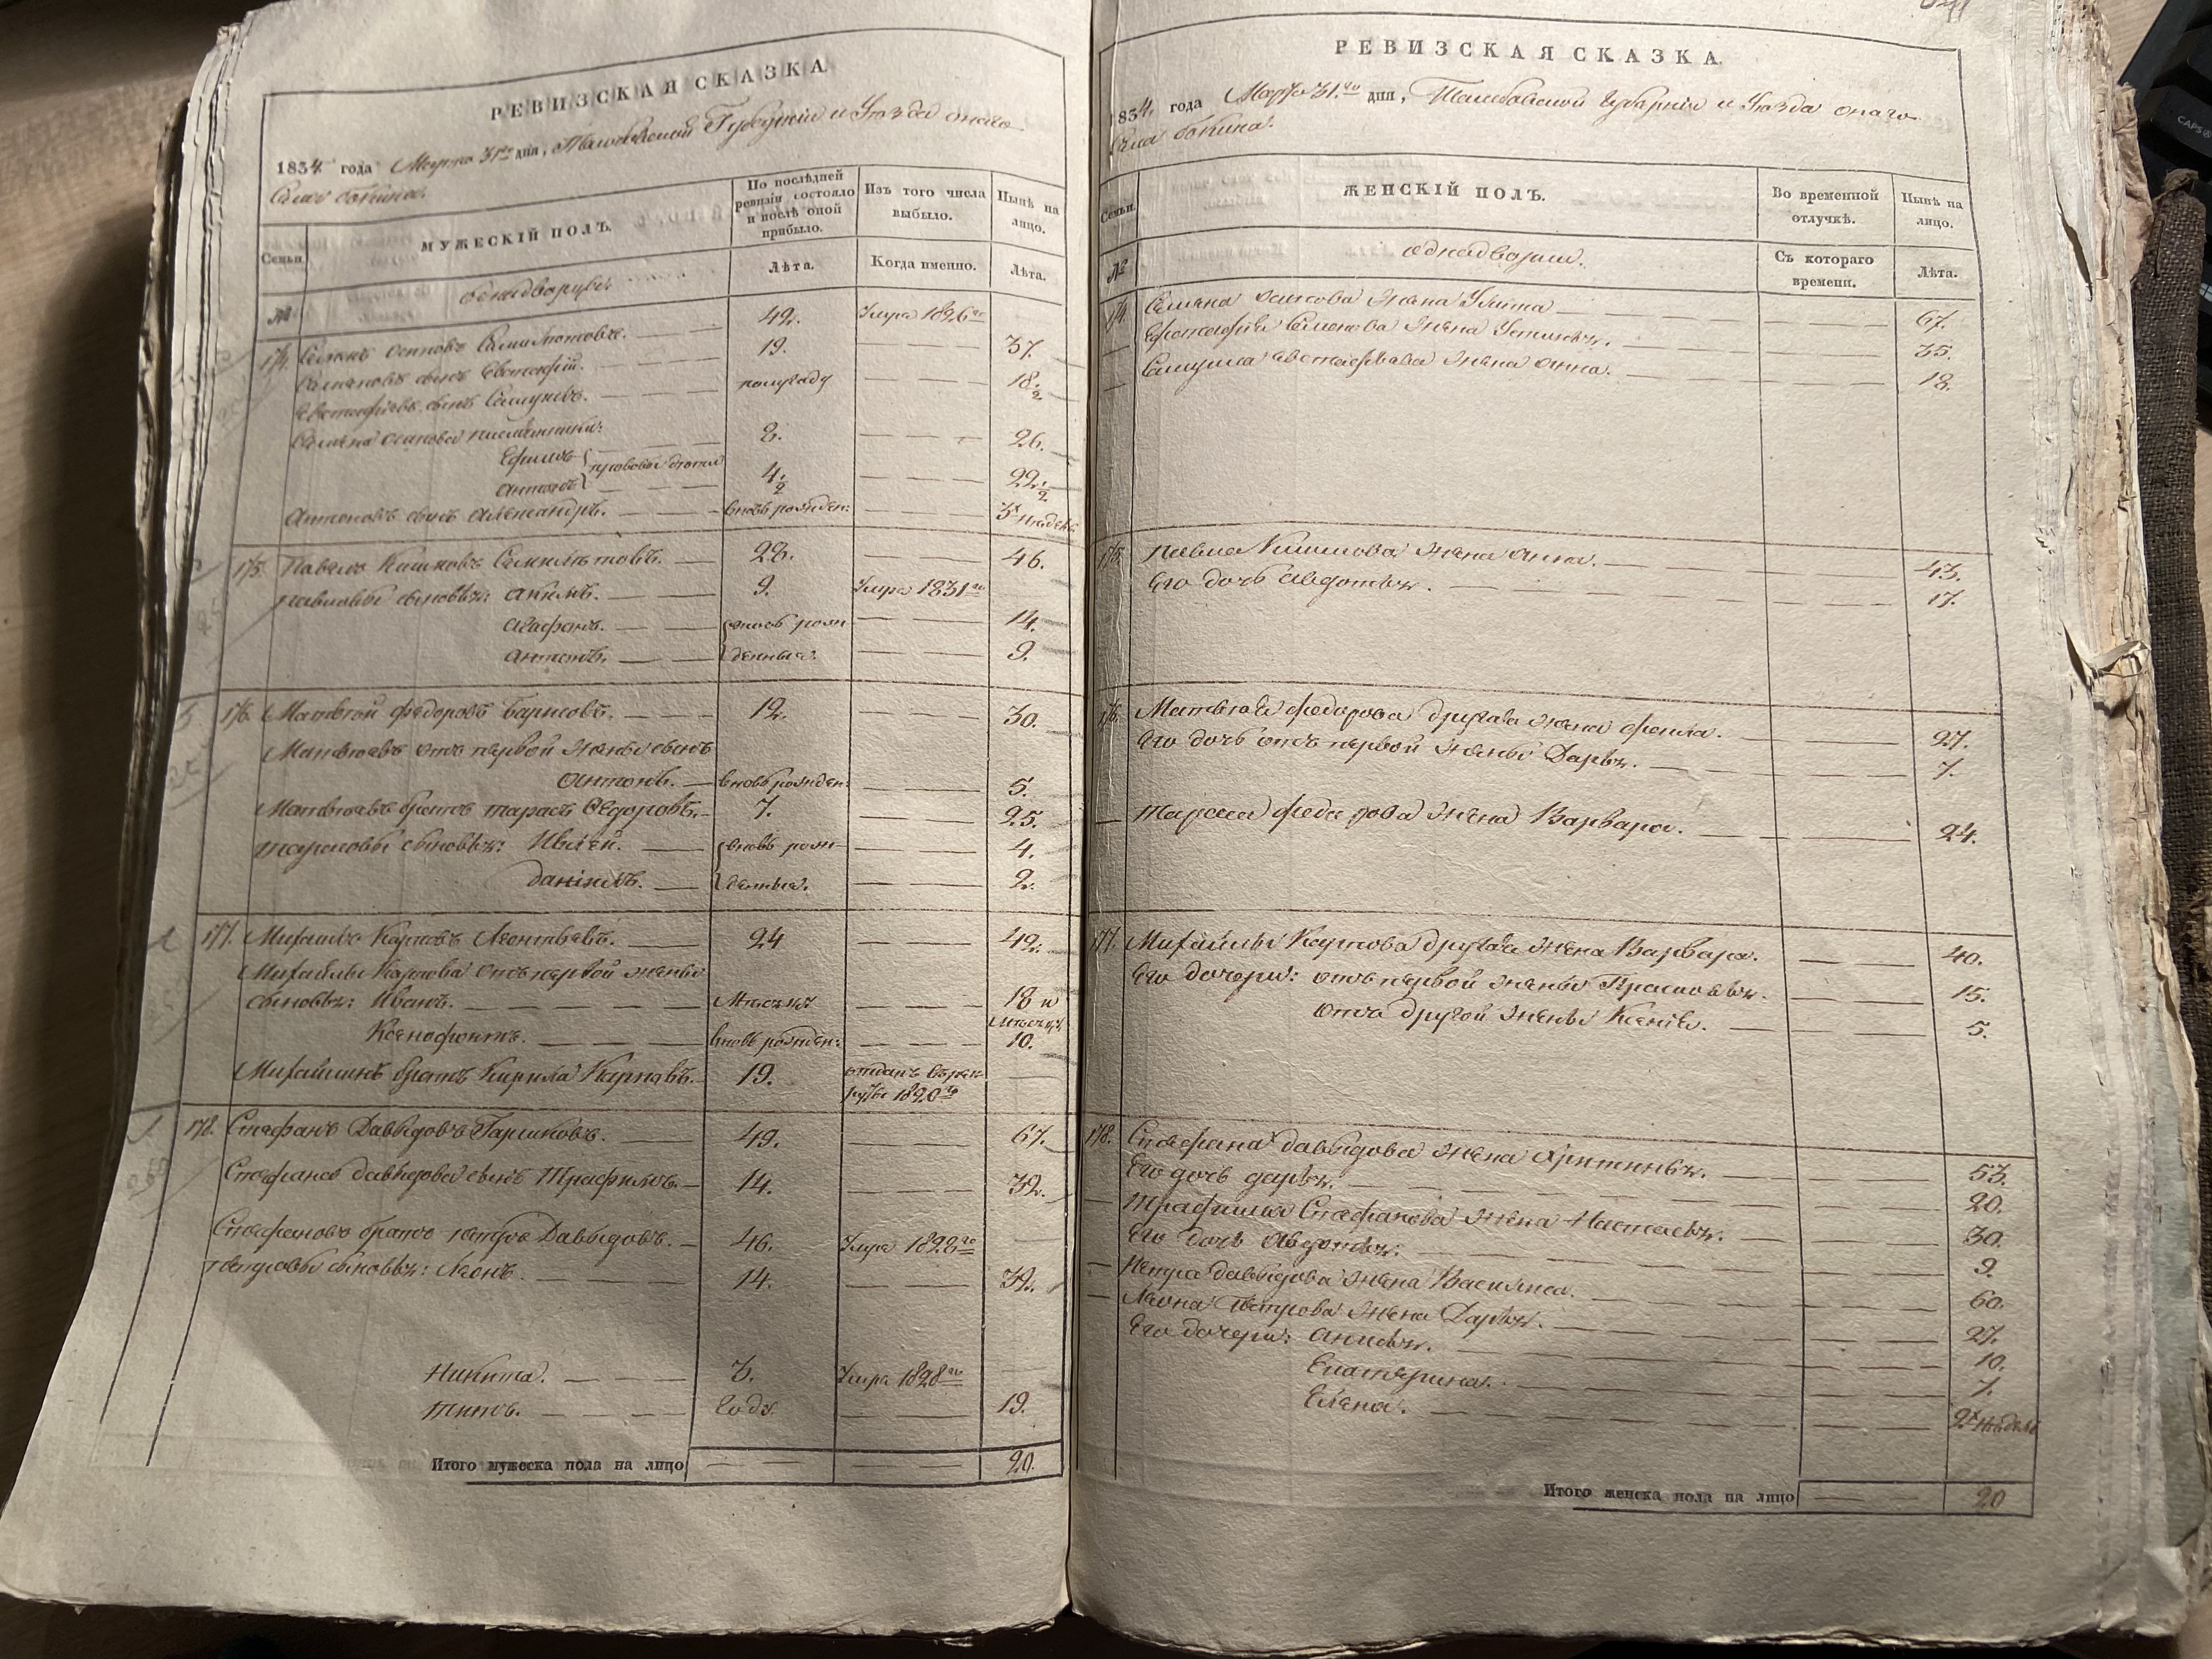 РЕВИЗСКАЯ СКАЗКА
1834 года Марта 31го дня, Тамбовской Губернiи и Уезда онаго
Села бокина.
Семьи.
МУЖЕСКIЙ ПОЛЪ.
По послѣдней ревизiи состояло и послѣ оной прибыло.
Изъ того числа выбыло.
Нынѣ на лицо.
№
однодворцы
Лѣта.
Когда именно.
Лѣта.
174. Семенъ осиповъ — 49. Умре 1826го
Семеновъ сынъ Евстафiй. — 19. — 37.
Евстафьевъ сынъ Самуилъ. — полугоду — 18 1/2
Семена осипова племянники:
Ефимъ — 8. — 26.
антонъ — 4 1/2 — 22 1/2
антоновъ сынъ александръ. — вновь рожден: — 3х недель
175. Павелъ — 28. — 46.
павловы сыновья: акимъ. — 9. Умре 1831го
агафонъ. — вновь рож — 14.
антонъ. — денныя. — 9.
176. Матвей федоровъ борисовъ. — 12. — 30.
Матвеевъ отъ первой жены сынъ
антонъ. — вновь рожден: — 5.
Матвеевъ братъ тарасъ Федоровъ. — 7. — 25.
тарасовы сыновья: — вновь рож — 4.
данiилъ. — денныя. — 2.
177. Михайла Карповъ Леонтьевъ. — 24 — 42.
Михайлы Карпова отъ первой жены
сыновья: Иванъ. — Месяца — 18 и месяцъ
Ксенофонтъ. — вновь рожден: — 10.
Михайлинъ братъ Кирила Карповъ. — 19. отданъ въ рек
руты 1820го
178. Стефанъ Давыдовъ Гариковъ. — 49. — 67.
Стефана давыдова сынъ Трафимъ. — 14. — 32.
Стефановъ братъ петръ Давыдовъ. — 46. Умре 1828го
петровы сыновья: Леонъ. — 14. — 32.
Никита. — 3. Умре 1828го
титъ. — году — 19.
Итого мужеска пола на лицо — 20.
РЕВИЗСКАЯ СКАЗКА.
1834 года Марта 31го дня, Тамбовской Губернiи и Уезда онаго
Села бокина.
Семьи.
ЖЕНСКIЙ ПОЛЪ.
Во временной отлучкѣ.
Нынѣ на лицо.
№
однодворцы.
Съ котораго времени.
Лѣта.
174. Семена осипова жена Улита — 67.
Евстафiя Семенова жена Устинья. — 35.
Самуила евстафьева жена анна. — 18.
175. павла жена анна. — 43.
Его дочь авдотья. — 17.
176. Матвея федорова другая жена фекла. — 27.
Его дочь отъ первой жены Дарья. — 7.
Тараса федорова жена Варвара. — 24.
177. Михайлы Карпова другая жена Варвара. — 40.
Его дочери: отъ первой жены Прасковья. — 15.
отъ другой жены Ксенiя. — 5.
178. Стефана давыдова жена Христинья. — 53.
Его дочь дарья. — 20.
Трафима Стефанова жена Настасья. — 30.
Его дочь авдотья. — 9.
Петра давыдова жена Василиса. — 60.
Леона Петрова жена Дарья. — 27.
Его дочери: анисья. — 10.
Екатерина. — 7.
Елена. — 2х недель
Итого женска пола на лицо — 20